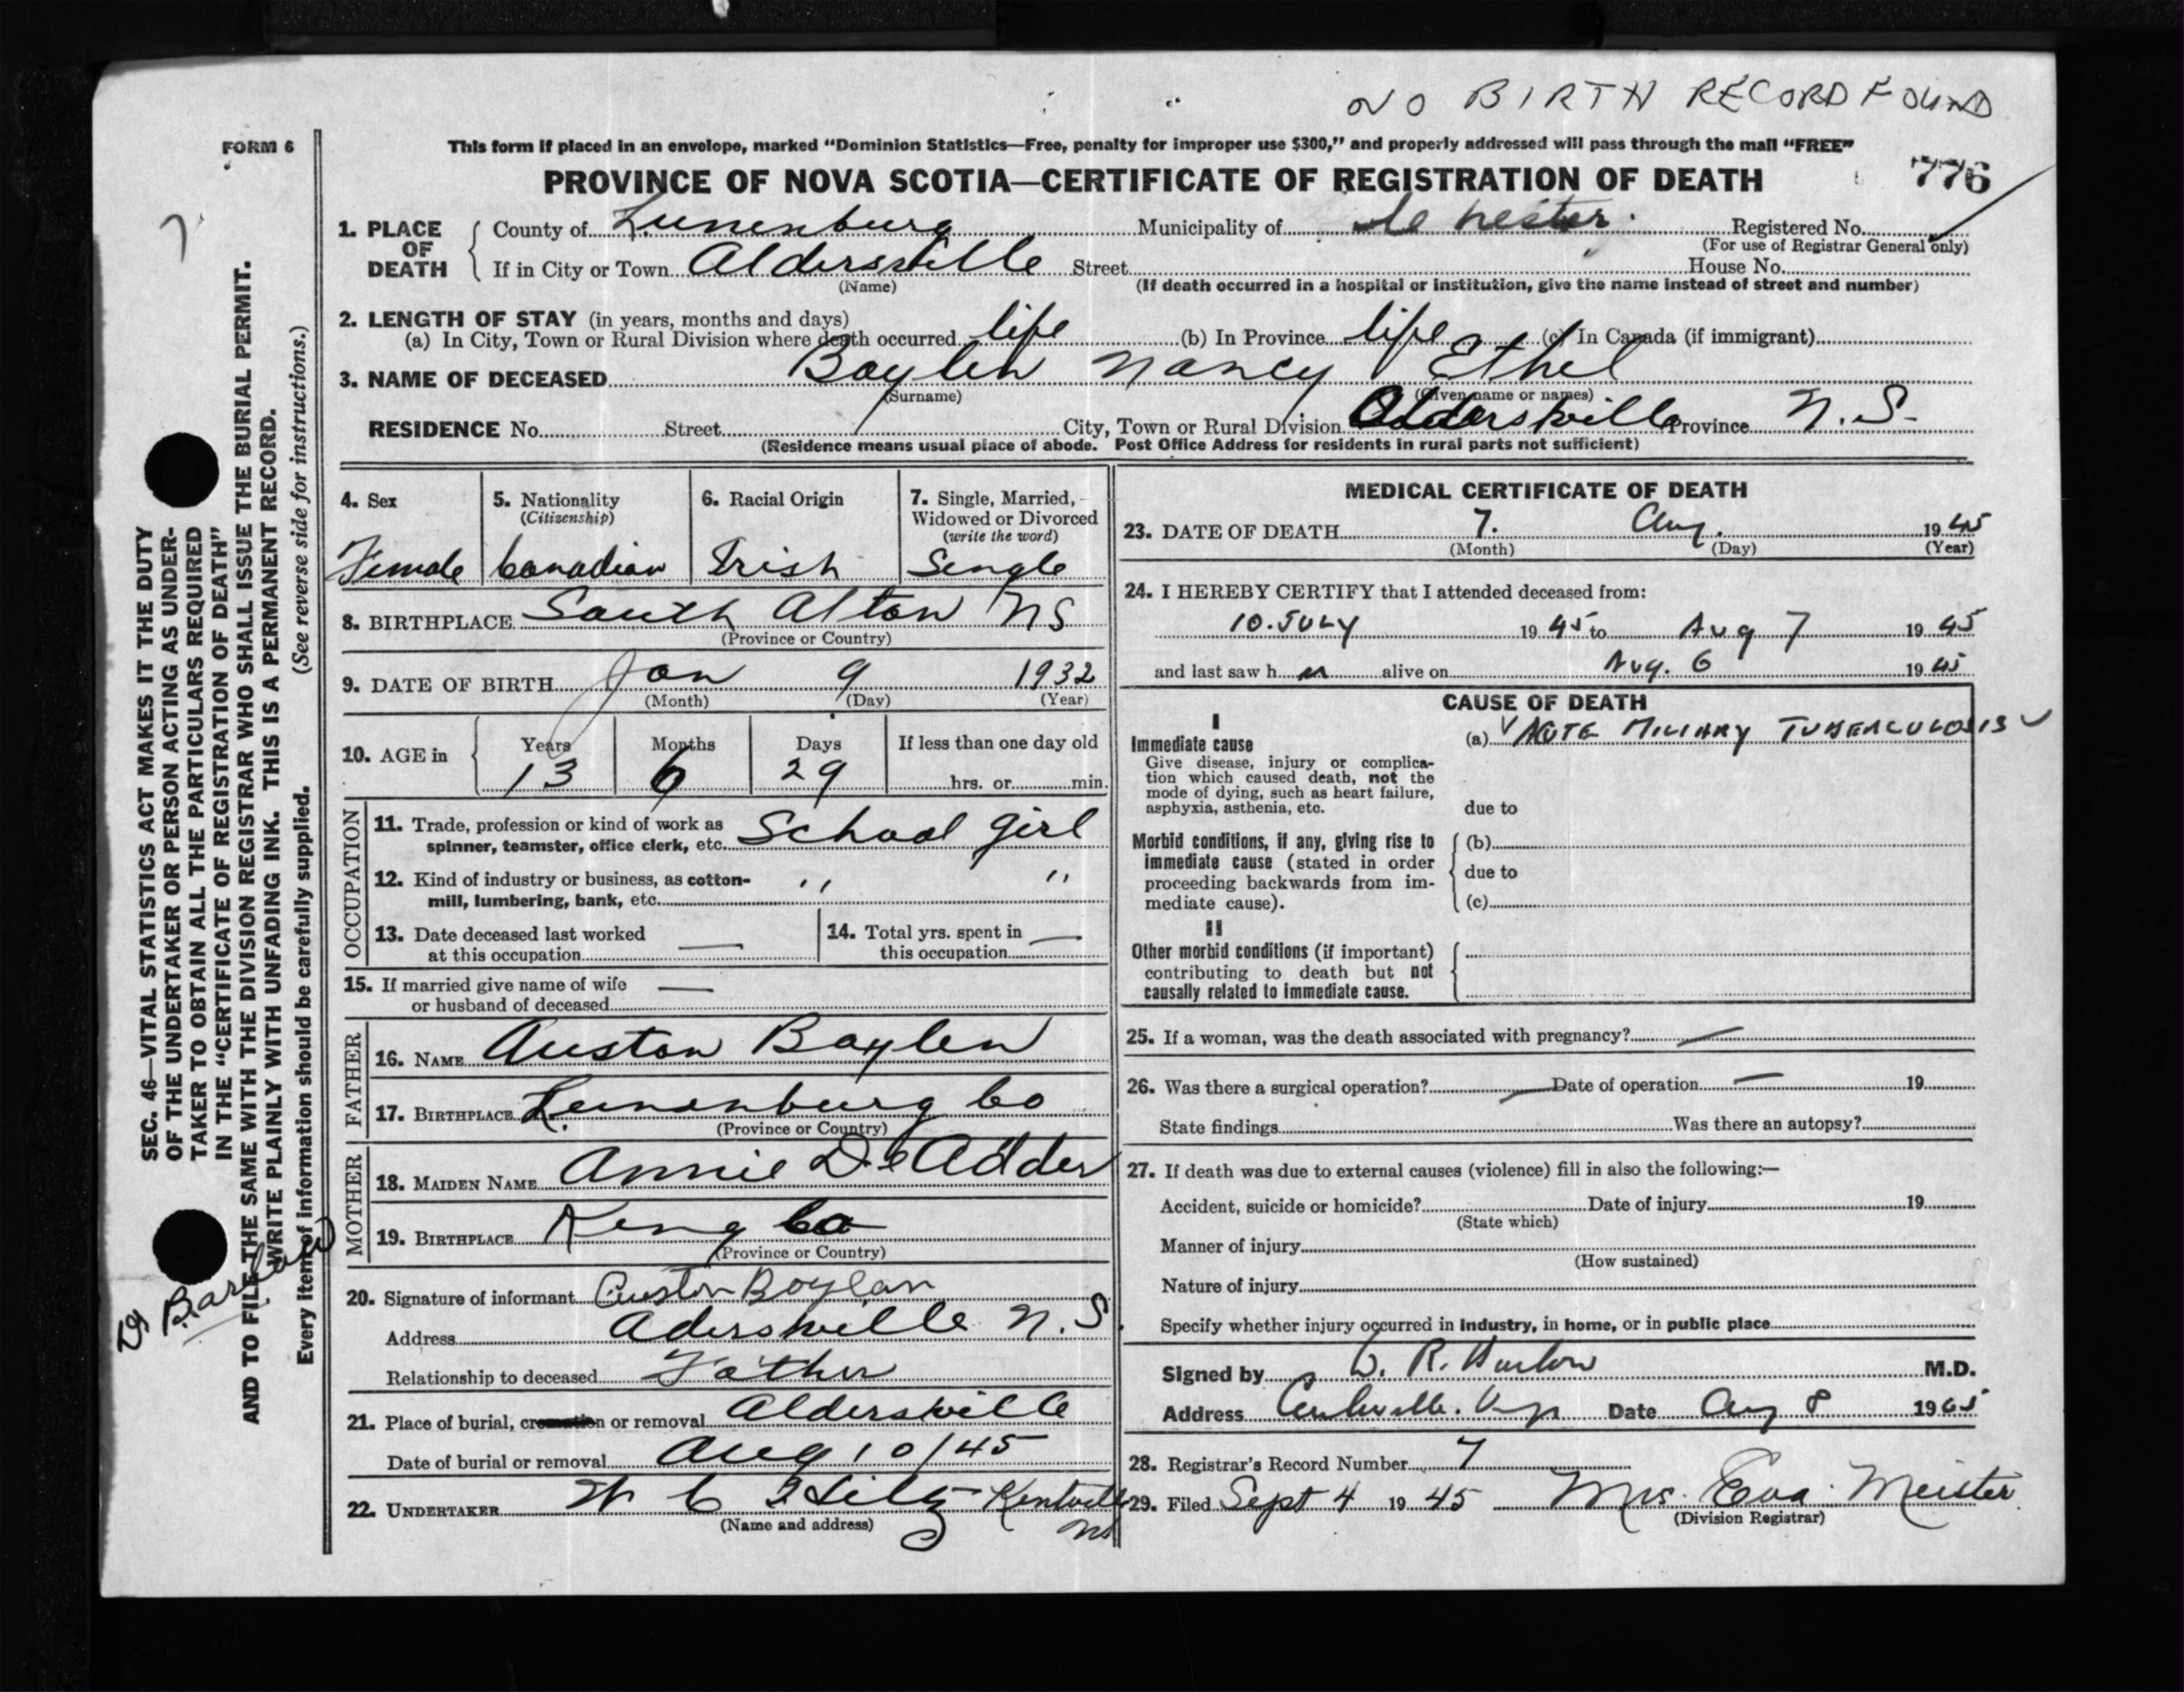 NO BIRTH RECORD FOUND
FORM 6
This form if placed in an envelope, marked "Dominion Statistics—Free, penalty for improper use $300," and properly addressed will pass through the mail "FREE"
PROVINCE OF NOVA SCOTIA—CERTIFICATE OF REGISTRATION OF DEATH
776
1. PLACE OF DEATH
County of Lunenburg Municipality of Chester Registered No.
(For use of Registrar General only)
If in City or Town Aldersville Street House No.
(Name) (If death occurred in a hospital or institution, give the name instead of street and number)
2. LENGTH OF STAY (in years, months and days)
(a) In City, Town or Rural Division where death occurred life (b) In Province life (c) In Canada (if immigrant)
3. NAME OF DECEASED Baylen Nancy Ethel
(Surname) (Given name or names)
RESIDENCE No. Street City, Town or Rural Division Aldersville Province N.S.
(Residence means usual place of abode. Post Office Address for residents in rural parts not sufficient)
4. Sex 5. Nationality (Citizenship) 6. Racial Origin 7. Single, Married, Widowed or Divorced (write the word)
Female Canadian Irish Single
8. BIRTHPLACE South Alton NS
(Province or Country)
9. DATE OF BIRTH Jan 9 1932
(Month) (Day) (Year)
10. AGE in Years Months Days If less than one day old
13 6 29 hrs. or min.
OCCUPATION
11. Trade, profession or kind of work as spinner, teamster, office clerk, etc. School girl
12. Kind of industry or business, as cotton-mill, lumbering, bank, etc. " "
13. Date deceased last worked at this occupation —
14. Total yrs. spent in this occupation —
15. If married give name of wife or husband of deceased —
FATHER
16. NAME Auston Baylen
17. BIRTHPLACE Lunenburg Co
(Province or Country)
MOTHER
18. MAIDEN NAME Annie DeAdder
19. BIRTHPLACE King Co
(Province or Country)
20. Signature of informant Auston Boylan
Address Adersville N.S.
Relationship to deceased Father
21. Place of burial, cremation or removal Aldersville
Date of burial or removal Aug 10/45
22. UNDERTAKER W C Hiltz Kentville NS
(Name and address)
MEDICAL CERTIFICATE OF DEATH
23. DATE OF DEATH 7. Aug. 1945
(Month) (Day) (Year)
24. I HEREBY CERTIFY that I attended deceased from:
10. JULY 1945 to Aug 7 1945
and last saw h er alive on Aug. 6 1945
CAUSE OF DEATH
I
Immediate cause
Give disease, injury or complication which caused death, not the mode of dying, such as heart failure, asphyxia, asthenia, etc.
(a) ACUTE MILIARY TUBERCULOSIS
due to
Morbid conditions, if any, giving rise to immediate cause (stated in order proceeding backwards from immediate cause).
(b)
due to
(c)
II
Other morbid conditions (if important) contributing to death but not causally related to immediate cause.
25. If a woman, was the death associated with pregnancy? —
26. Was there a surgical operation? — Date of operation — 19
State findings Was there an autopsy?
27. If death was due to external causes (violence) fill in also the following:—
Accident, suicide or homicide? Date of injury 19
(State which)
Manner of injury
(How sustained)
Nature of injury
Specify whether injury occurred in industry, in home, or in public place
Signed by R. M.D.
Address Date Aug 8 1945
28. Registrar's Record Number 7
29. Filed Sept 4 1945 Mrs. Eva Meister
(Division Registrar)
SEC. 46—VITAL STATISTICS ACT MAKES IT THE DUTY
OF THE UNDERTAKER OR PERSON ACTING AS UNDER-
TAKER TO OBTAIN ALL THE PARTICULARS REQUIRED
IN THE "CERTIFICATE OF REGISTRATION OF DEATH"
AND TO FILE THE SAME WITH THE DIVISION REGISTRAR WHO SHALL ISSUE THE BURIAL PERMIT.
WRITE PLAINLY WITH UNFADING INK. THIS IS A PERMANENT RECORD.
Every item of information should be carefully supplied. (See reverse side for instructions.)